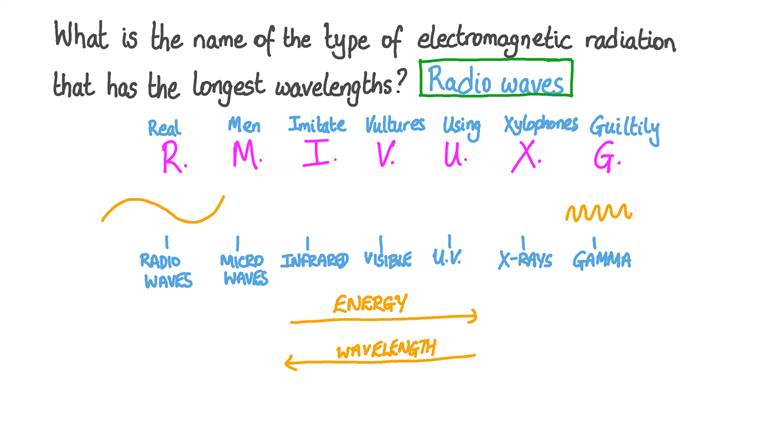 What is the name of the type of electromagnetic radiation
that has the longest wavelengths? Radio waves
Real Men Imitate Vultures Using Xylophones Guiltily
R. M. I. V. U. X. G.
RADIO WAVES MICRO WAVES INFRARED VISIBLE U.V. X-RAYS GAMMA
ENERGY
WAVELENGTH